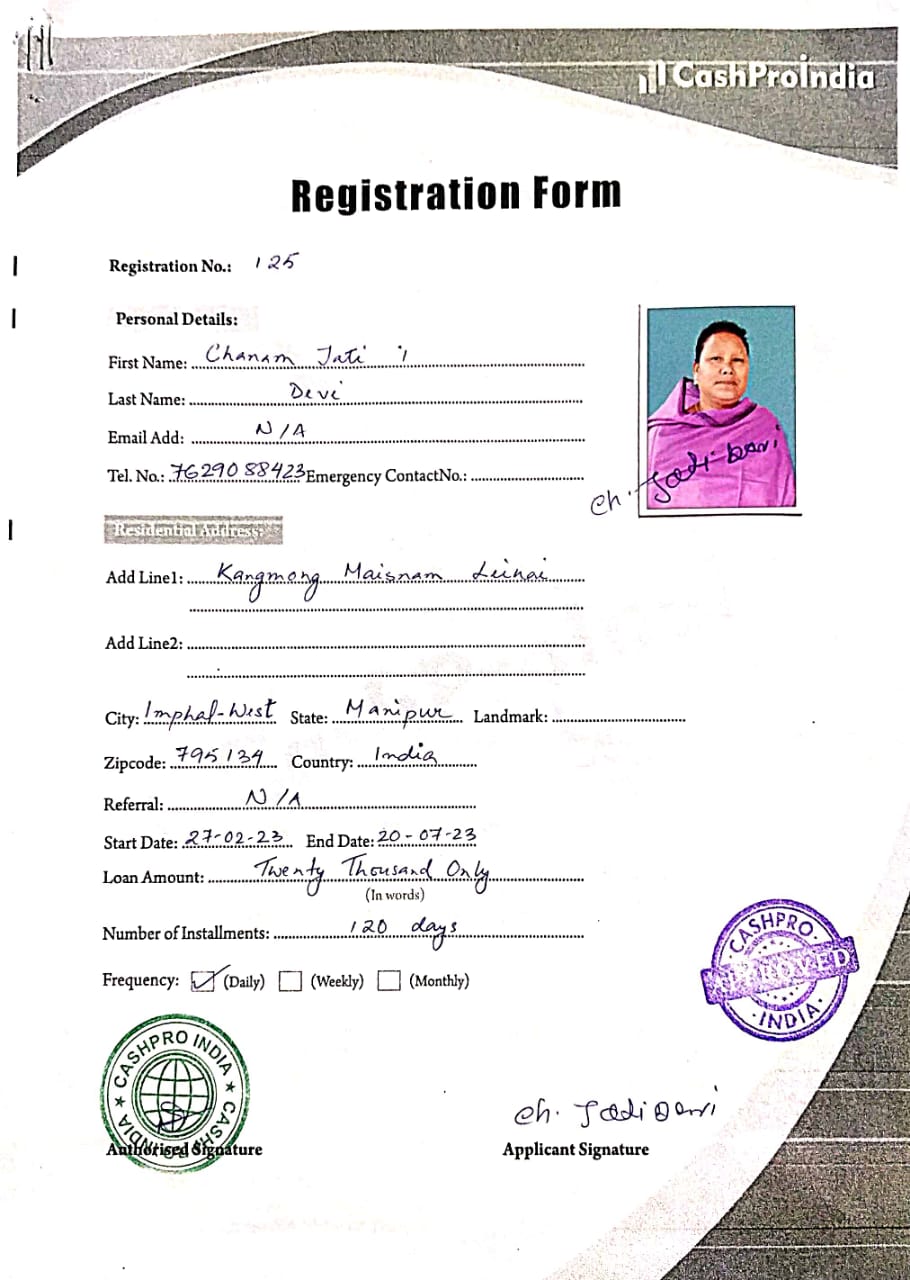 CashProIndia
Registration Form
Registration No.: 125
Personal Details:
First Name: Chanam Jati
Last Name: Devi
Email Add: N/A
Tel. No.: 7629088423 Emergency ContactNo.:
Ch. Jadi Devi
Residential Address:
Add Line1: Kangmong Maisnam Leikai
Add Line2:
City: Imphal-West State: Manipur Landmark:
Zipcode: 795134 Country: India
Referral: N/A
Start Date: 27-02-23 End Date: 20-07-23
Loan Amount: Twenty Thousand Only
(In words)
Number of Installments: 120 days
Frequency: (Daily) (Weekly) (Monthly)
CASHPRO INDIA
APPROVED
CASHPRO INDIA ★ CASHPRO INDIA ★
Ch. Jadi Devi
Authorised Signature Applicant Signature